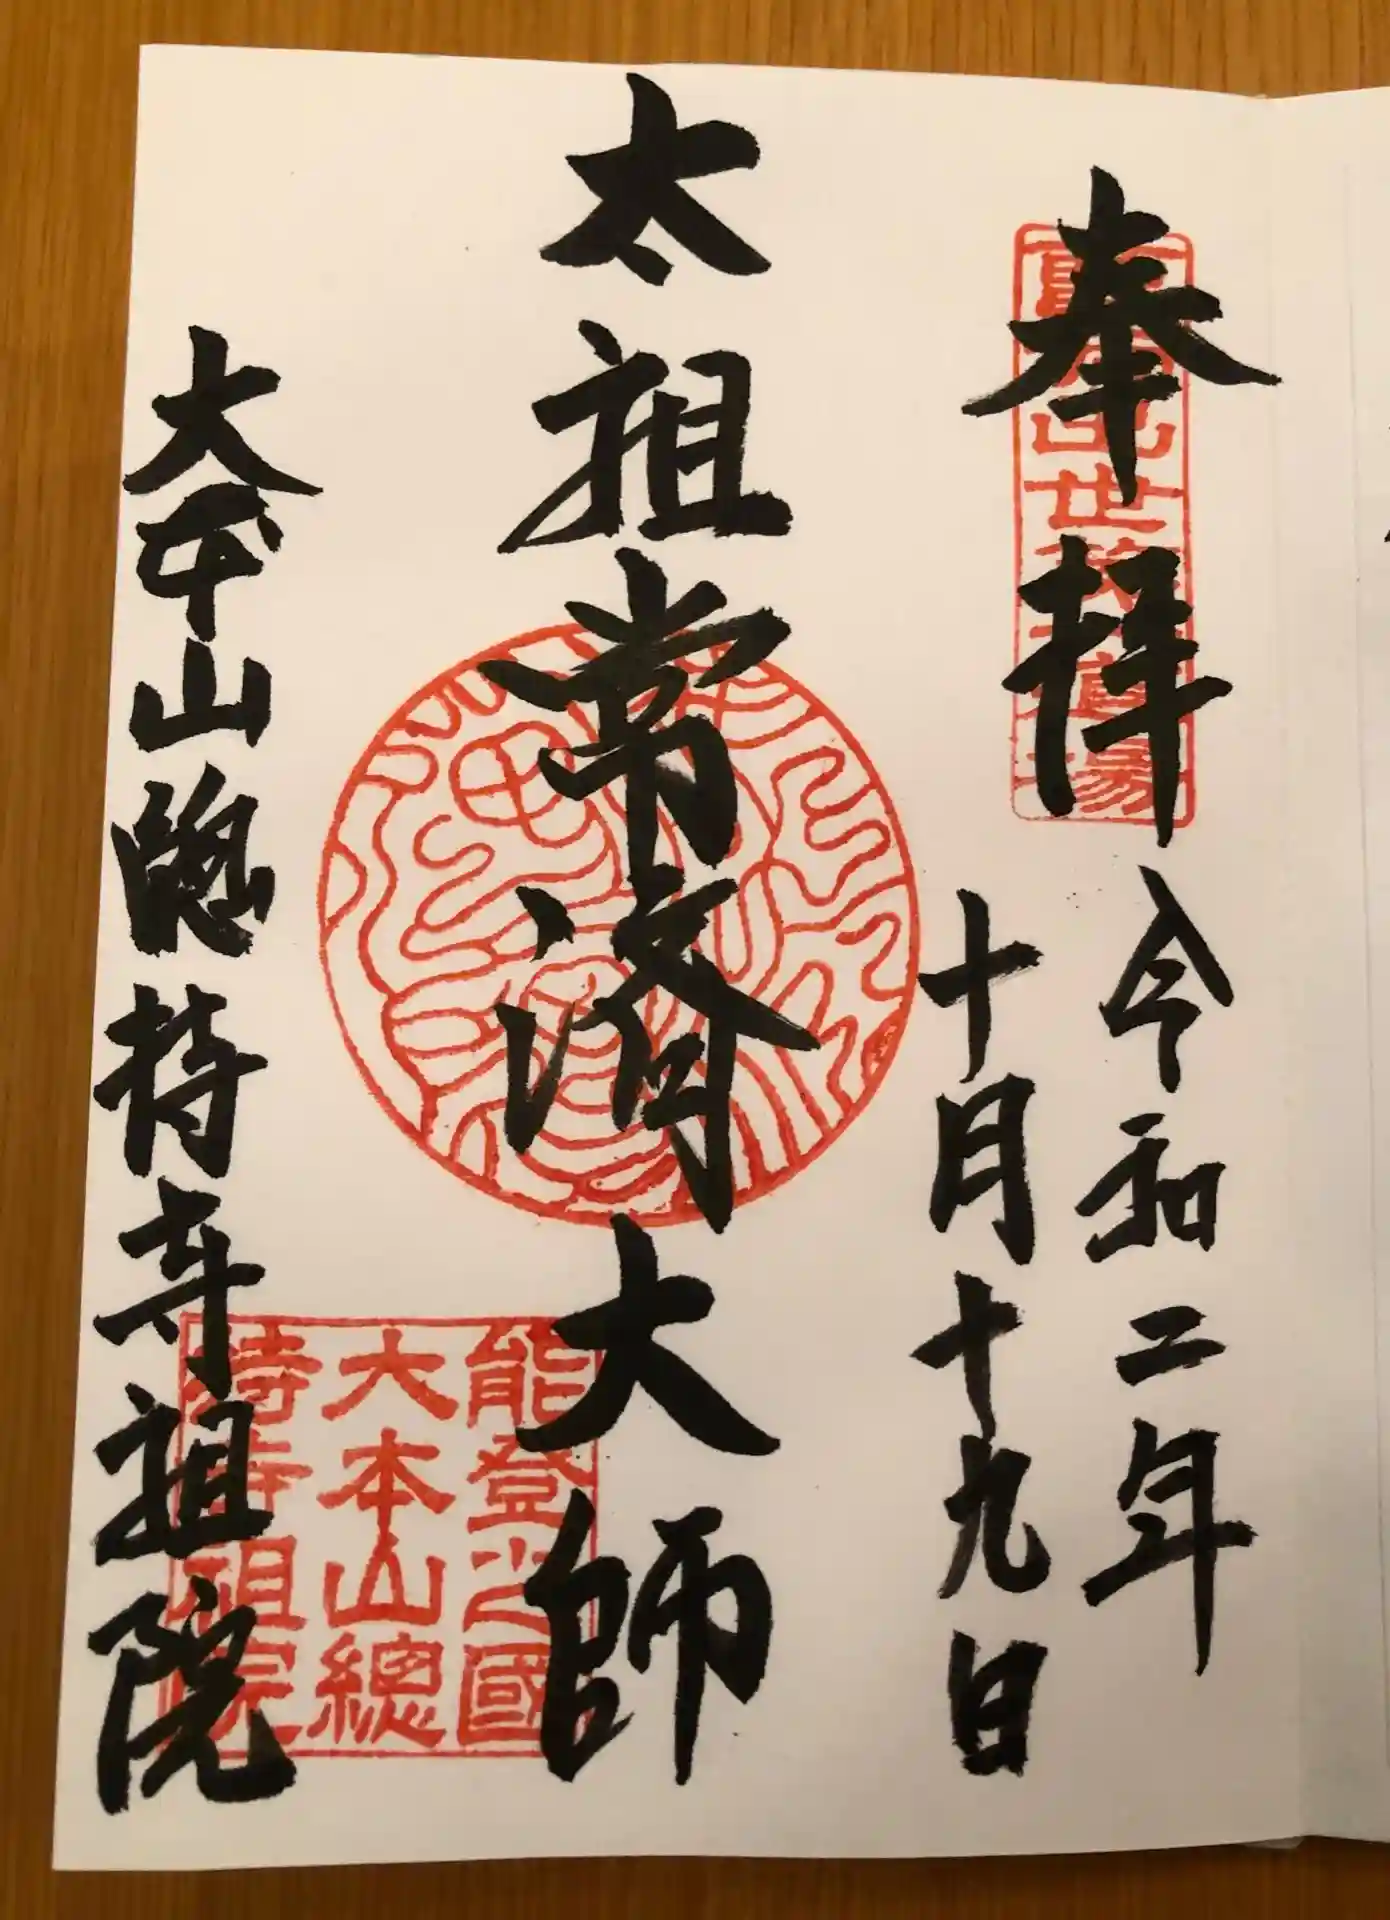 奉拝
令和二年
十月十九日
太祖常済大師
大本山總持寺祖院
能登之國
大本山總
持寺祖院